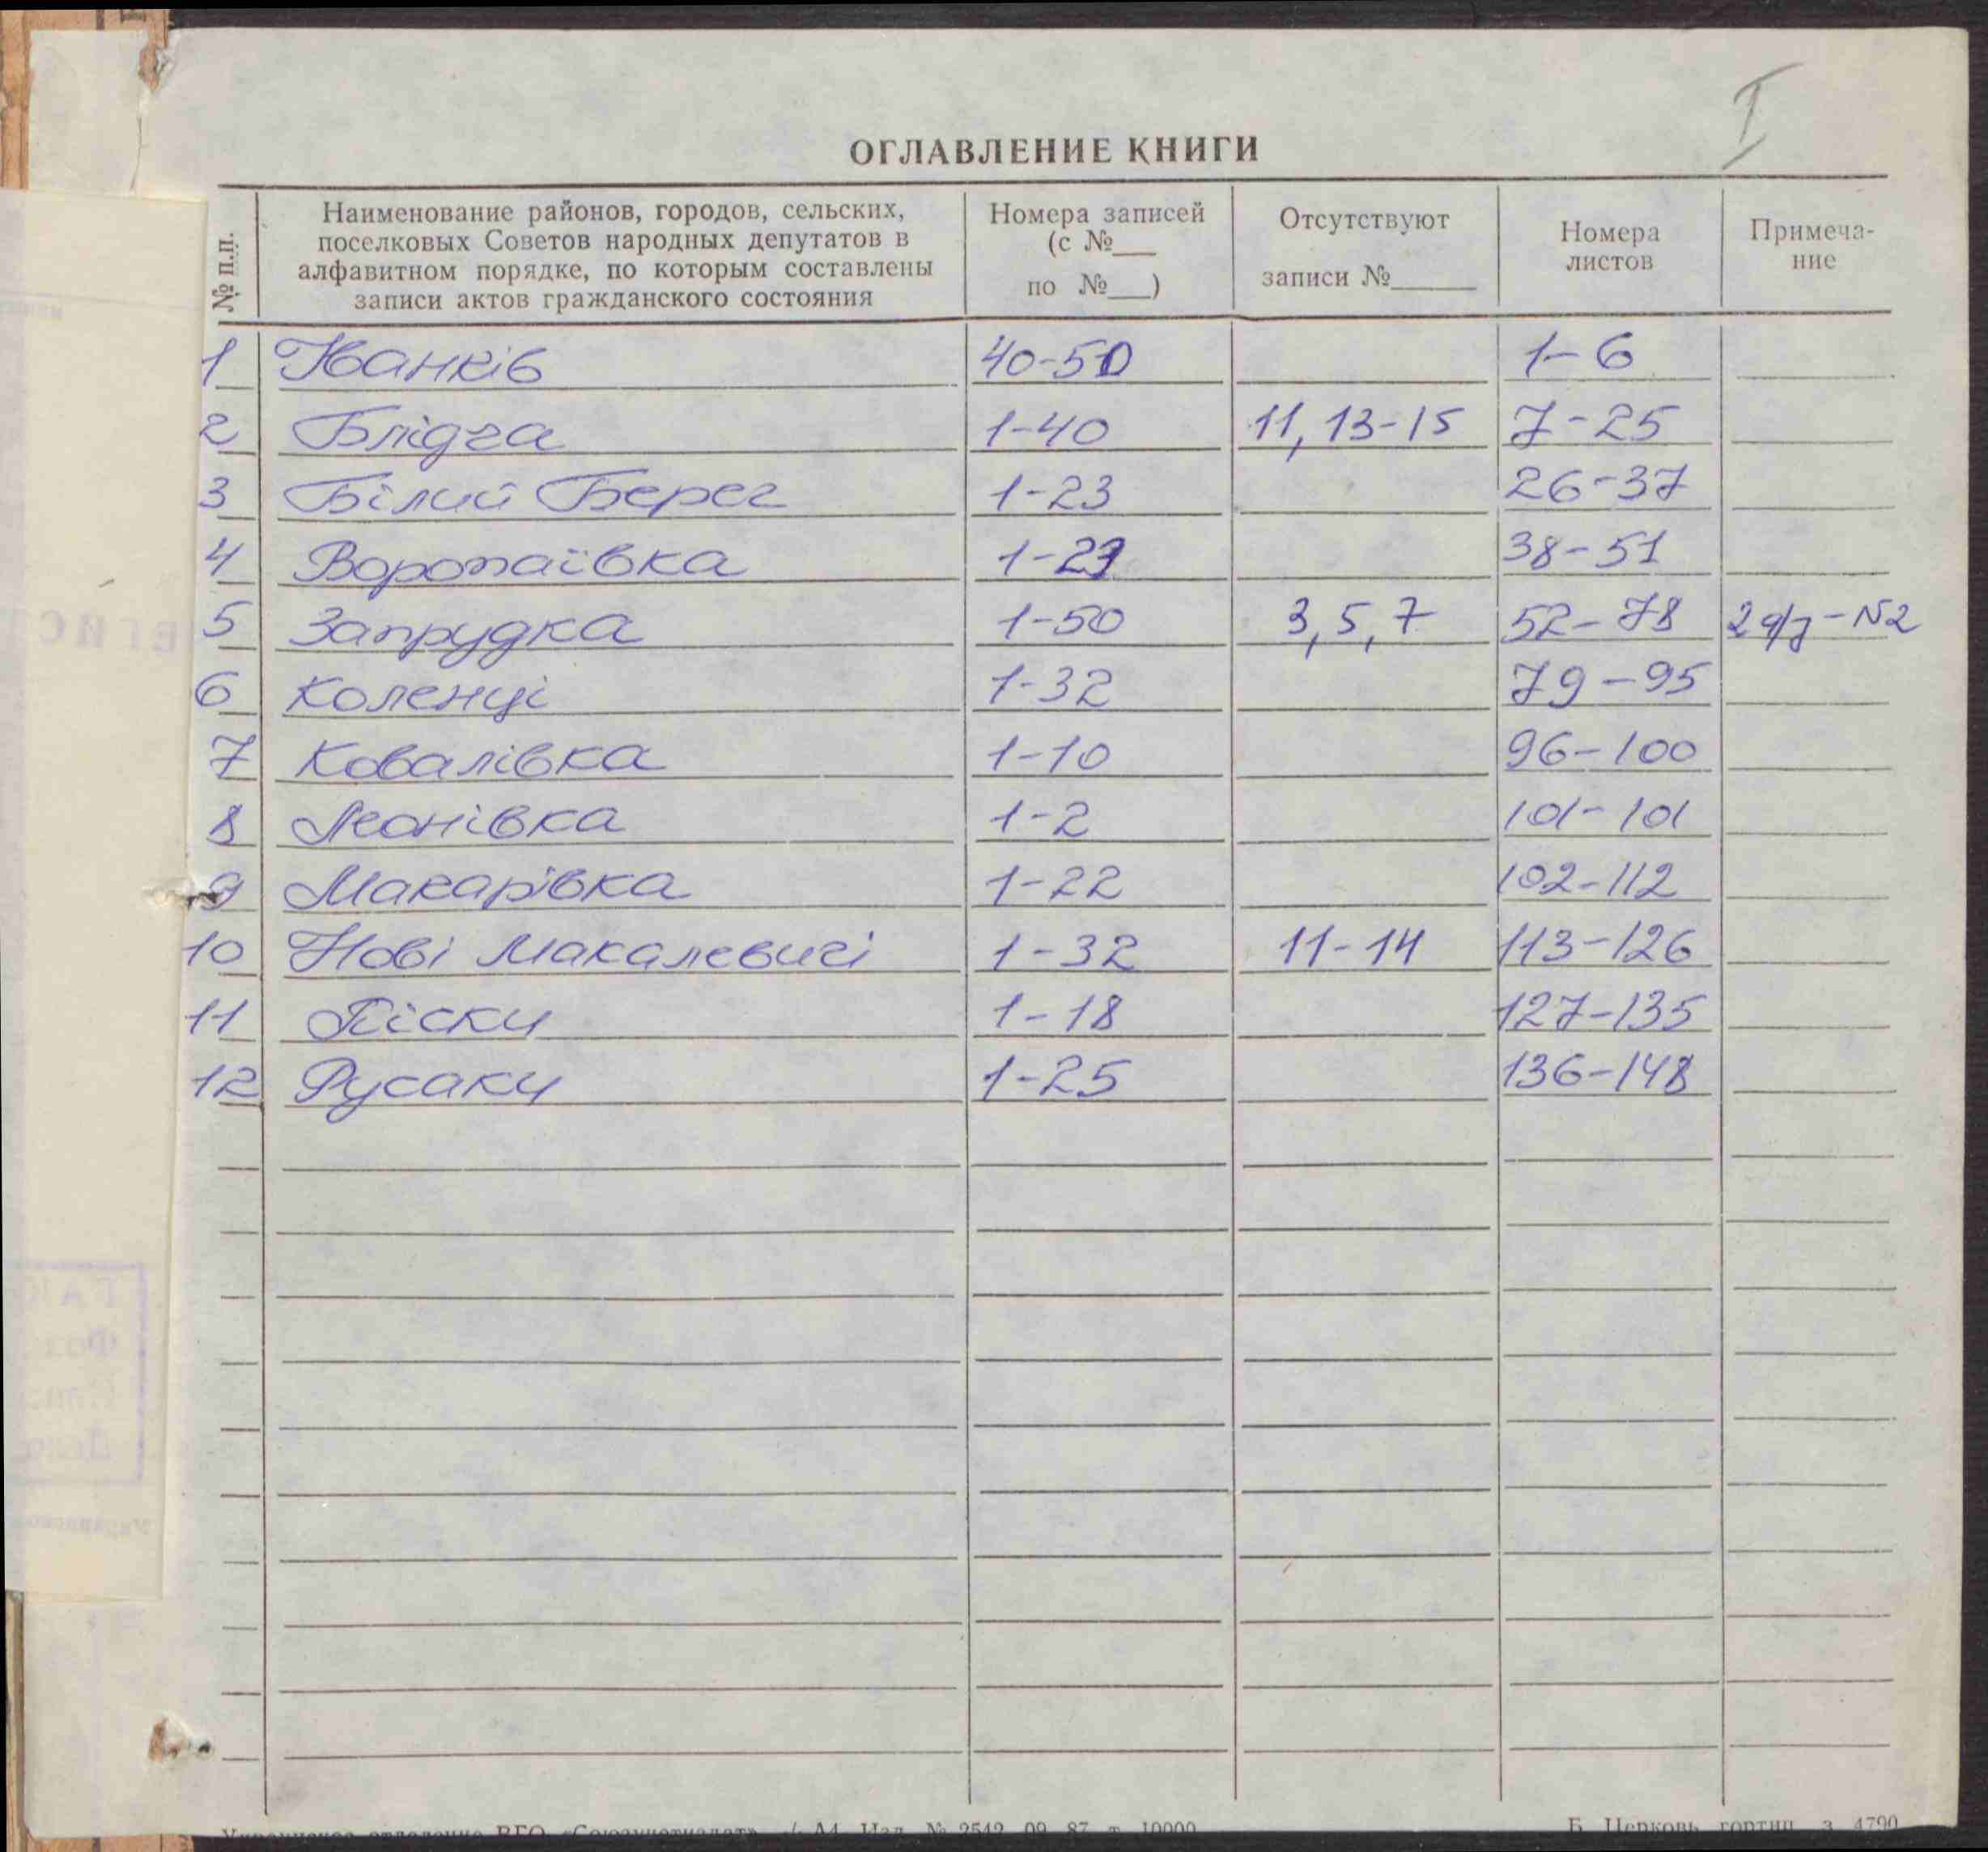 I
ОГЛАВЛЕНИЕ КНИГИ
№ п.п.
Наименование районов, городов, сельских,
поселковых Советов народных депутатов в
алфавитном порядке, по которым составлены
записи актов гражданского состояния
Номера записей
(с №___
по №___)
Отсутствуют
записи №______
Номера
листов
Примеча-
ние
1 Іванків 40-50 1-6
2 Блідча 1-40 11, 13-15 7-25
3 Білий Берег 1-23 26-37
4 Воропаївка 1-29 38-51
5 Запрудка 1-50 3, 5, 7 52-78 2 -N2
6 Коленці 1-32 79-95
7 Ковалівка 1-10 96-100
8 Леонівка 1-2 101-101
9 Макарівка 1-22 102-112
10 Нові Макалевичі 1-32 11-14 113-126
11 Піски 1-18 127-135
12 Русаки 1-25 136-148
Украинское отделение ВГО «Союзучетиздат» А4 Изд. № 2542 09 87 т. 10000
Б. Церковь гортип. з. 4790